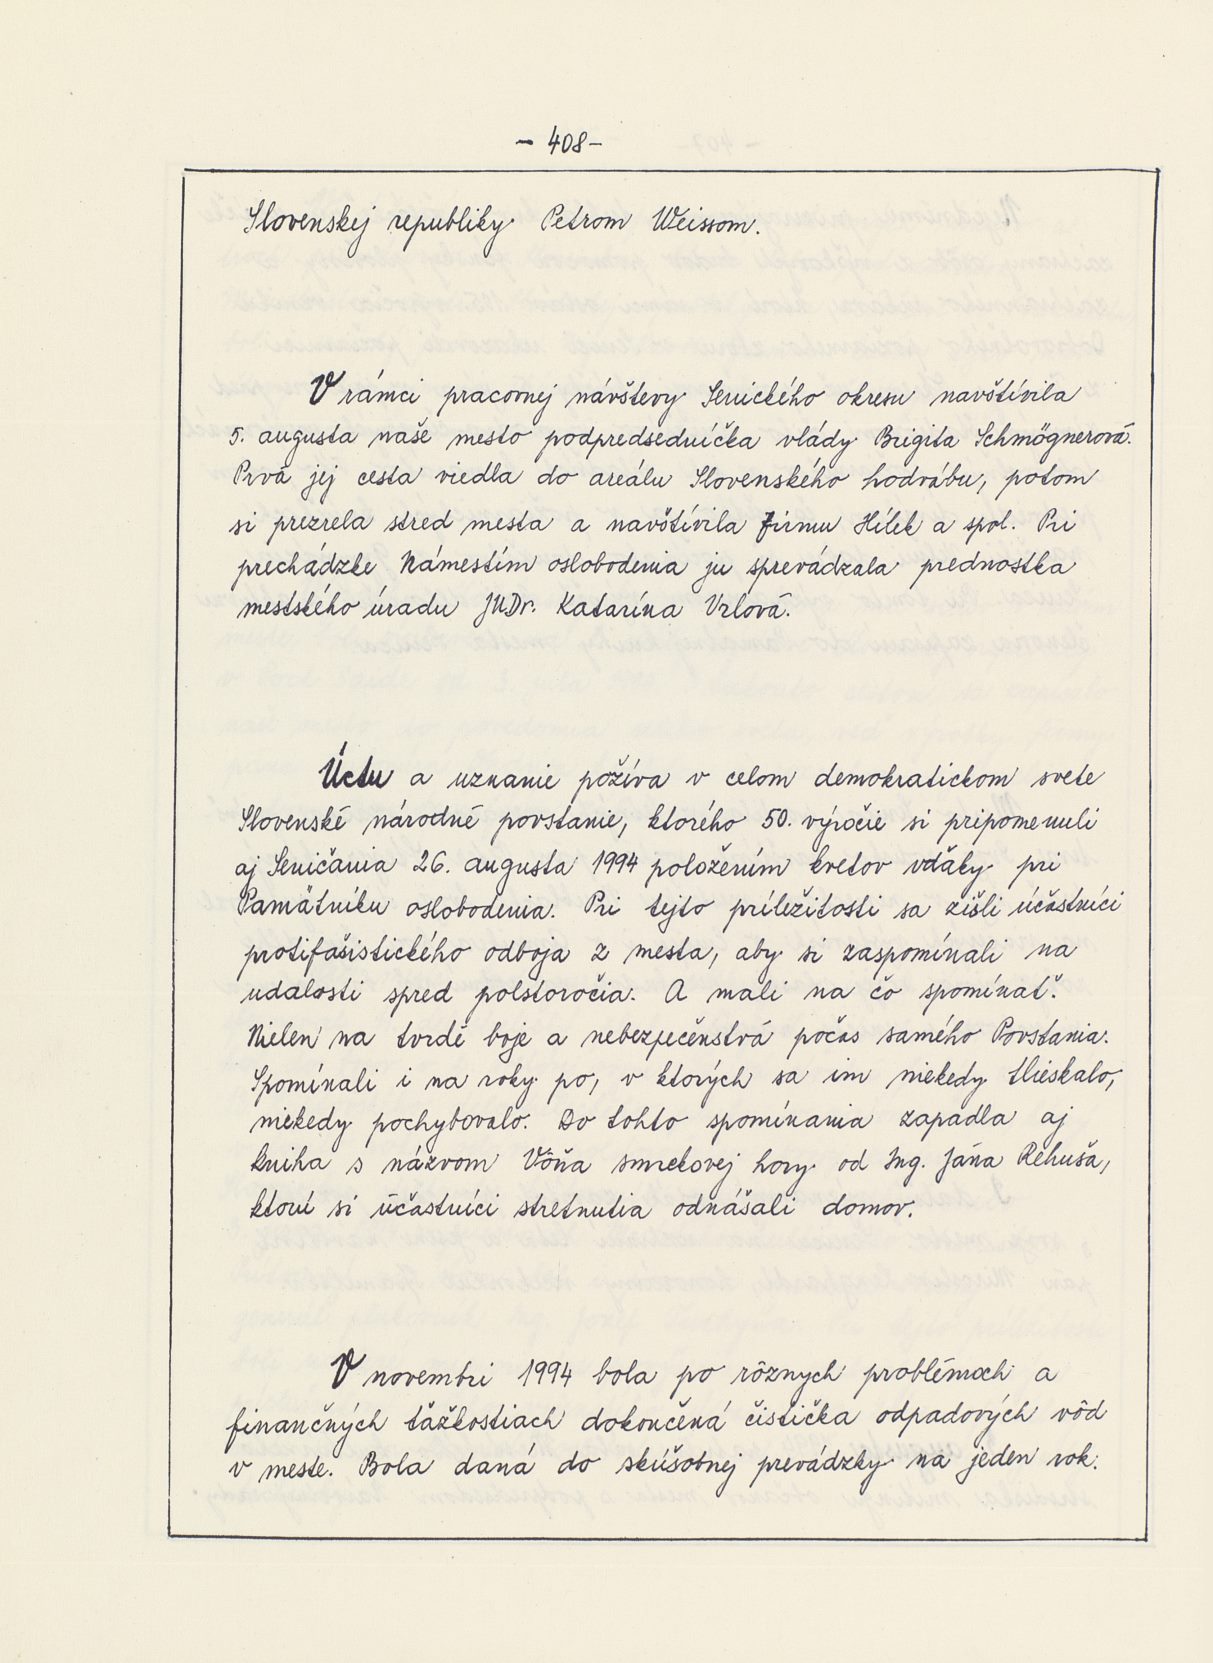 - 408 -
Slovenskej republiky Petrom Weissom.
V rámci pracovnej návštevy Senického okresu navštívila
5. augusta naše mesto podpredsedníčka vlády Brigita Schmögnerová.
Prvá jej cesta viedla do areálu Slovenského hodvábu, potom
si prezrela stred mesta a navštívila firmu Hílek a spol. Pri
prechádzke Námestím oslobodenia ju sprevádzala prednostka
mestského úradu JUDr. Katarína Vrlová.
Úctu a uznanie požíva v celom demokratickom svete
Slovenské národné povstanie, ktorého 50. výročie si pripomenuli
aj Seničania 26. augusta 1994 položením kvetov vďaky pri
Pamätníku oslobodenia. Pri tejto príležitosti sa zišli účastníci
protifašistického odboja z mesta, aby si zaspomínali na
udalosti spred polstoročia. A mali na čo spomínať.
Nielen na tvrdé boje a nebezpečenstvá počas samého Povstania.
Spomínali i na roky po, v ktorých sa im niekedy tlieskalo,
niekedy pochybovalo. Do tohto spomínania zapadla aj
kniha s názvom Vôňa smrekovej hory od Ing. Jána Rehuša,
ktorú si účastníci stretnutia odnášali domov.
V novembri 1994 bola po rôznych problémoch a
finančných ťažkostiach dokončená čistička odpadových vôd
v meste. Bola daná do skúšobnej prevádzky na jeden rok.